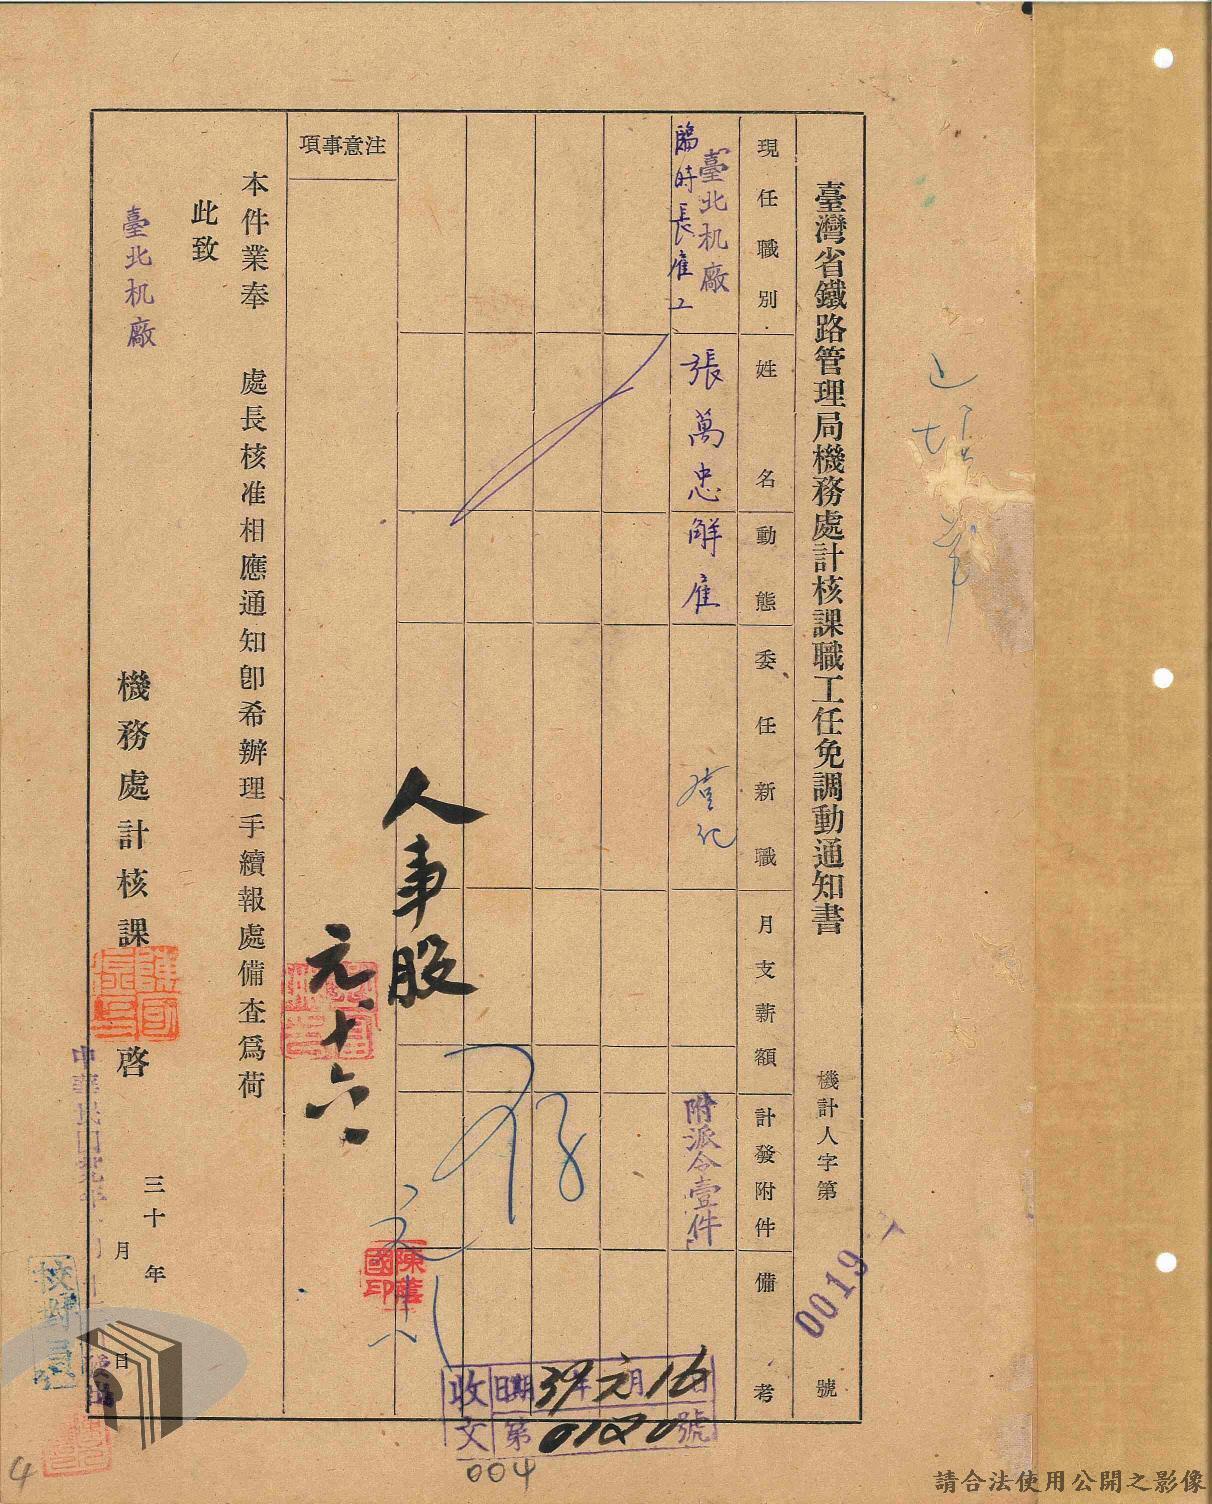 臺灣省鐵路管理局機務處計核課職工任免調動通知書
機計人字第 號
0019
現任職別
姓名
動態
委任新職
月支薪額
計發附件
備考
臺北机廠
臨時長雇工
張萬忠
解雇
登記
附派令壹件
注意事項
人事股
元十六
本件業奉 處長核准相應通知卽希辦理手續報處備查爲荷
此致
臺北机廠
機務處計核課 啓
三十 年 月 日
中華民國
校對
收文
日期39年元月16日
第0120號
004
4
請合法使用公開之影像